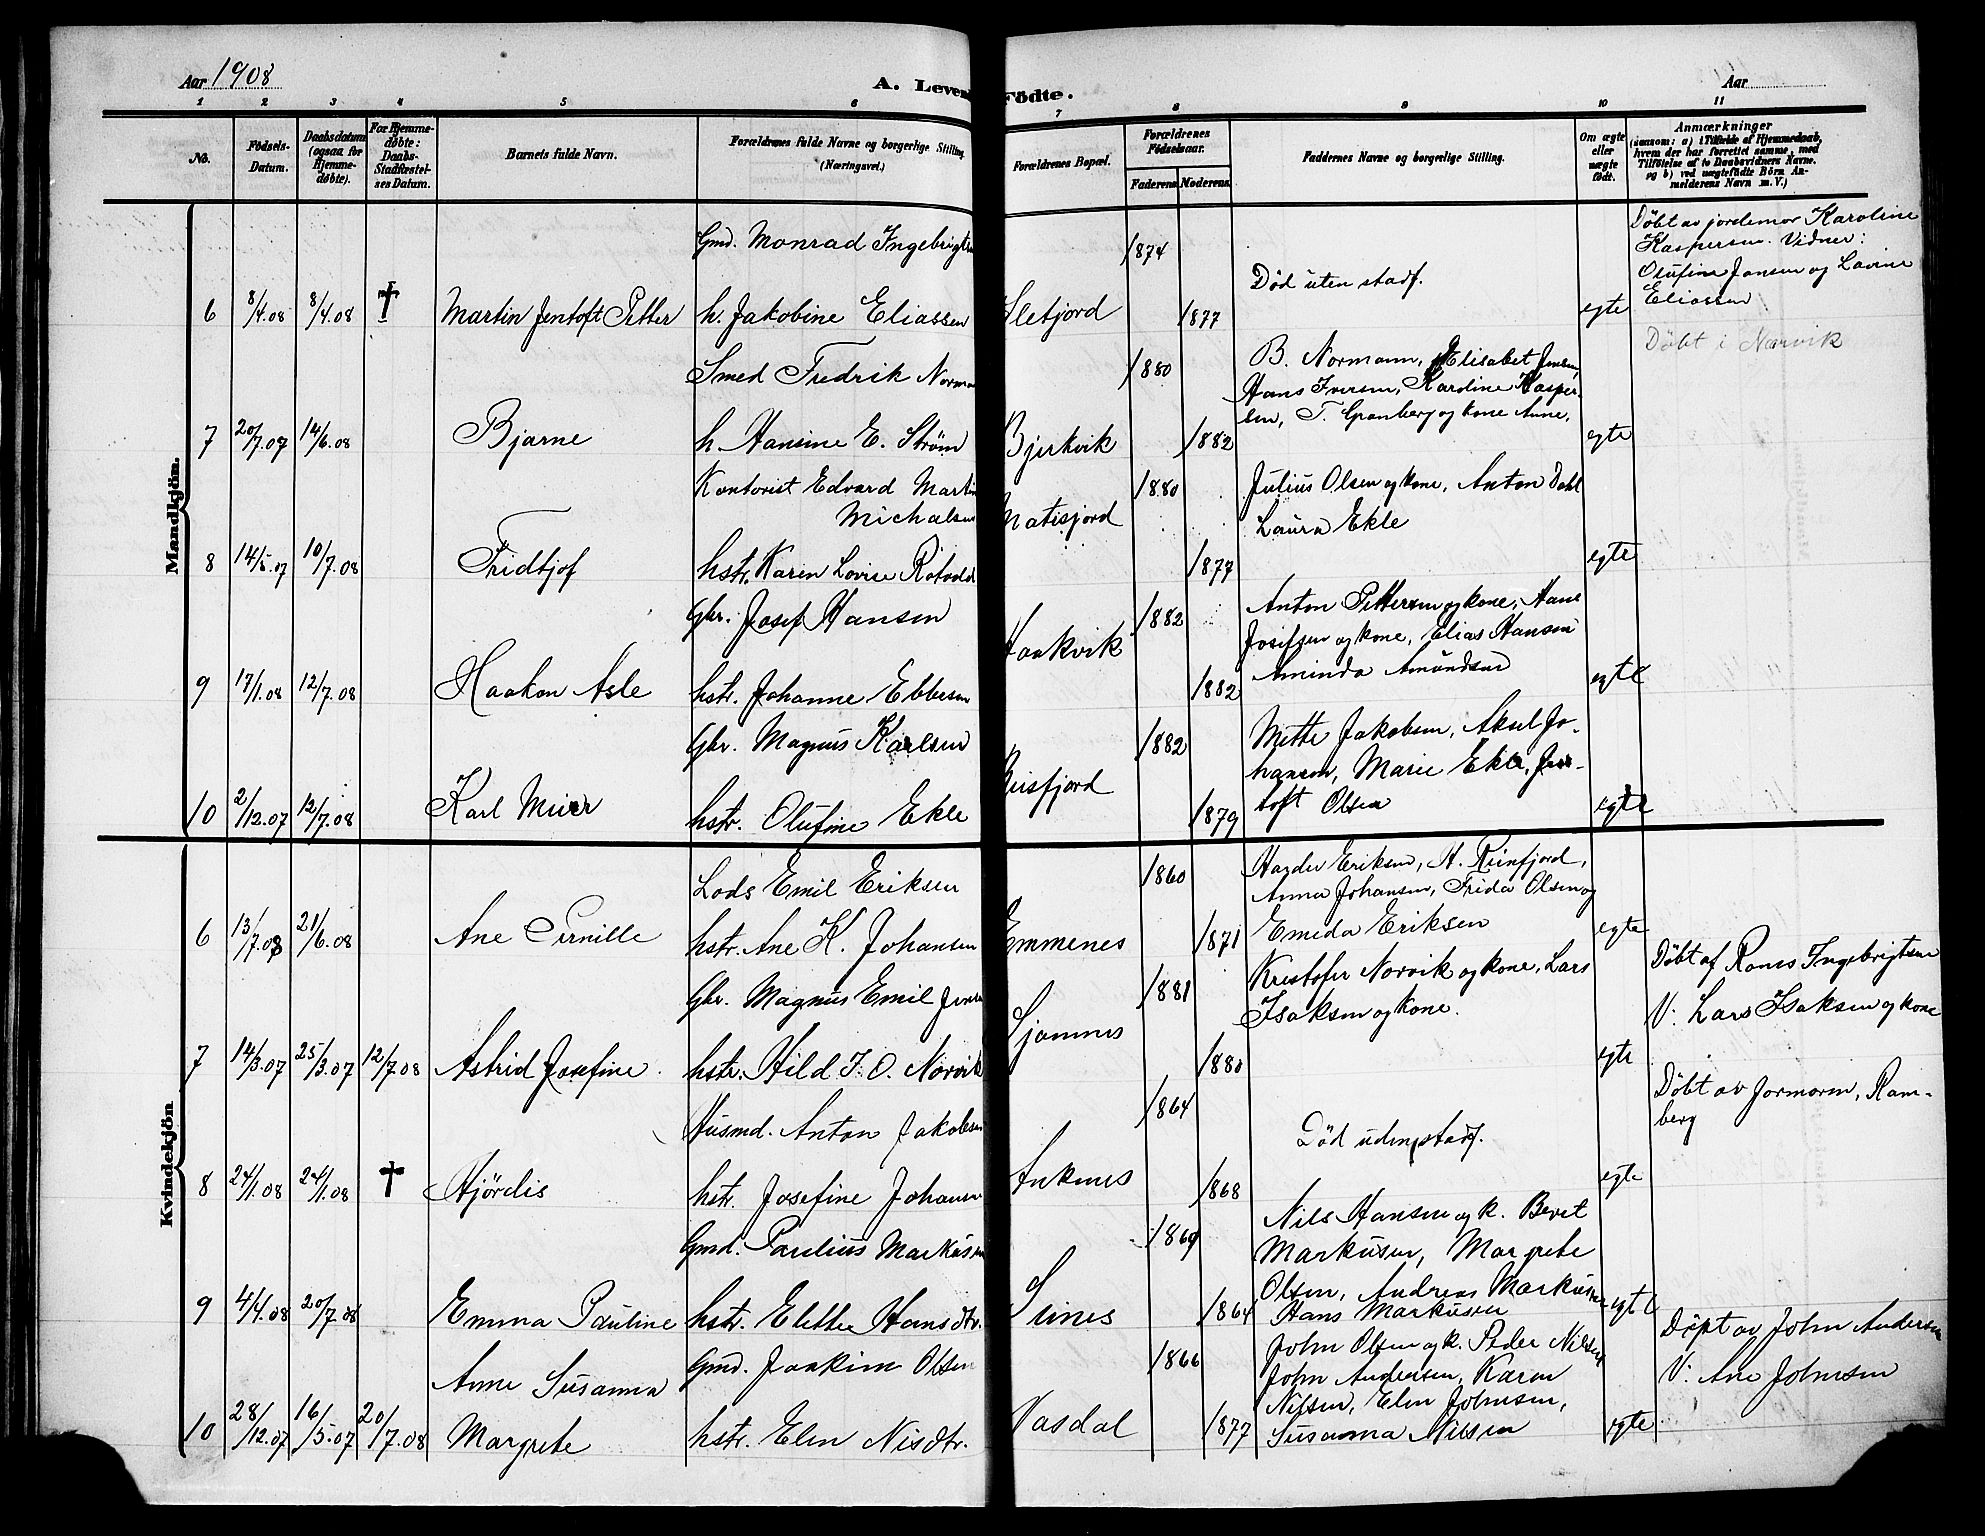 Aar 1908
A. Levend Födte.
Aar
1 2 3 4 5 6 7 8 9 10 11
No. Födsels-Datum. Daabsdatum (ogsaa for Hjemme-døbte). For Hjemme-døbte: Daabs-Stadfæstelses Datum. Barnets fulde Navn. Forældrenes fulde Navne og borgerlige Stilling (Næringsvei.) Forældrenes Bopæl. Forældrenes Födselsaar. Faderens. Moderens. Faddernes Navne og borgerlige Stilling. Om ægte eller uægte födt. Anmærkninger (saasom: a) i Tilfælde af Hjemmedaab, hvem der har forrettet samme, med Tilföielse af to Daabsvidners Navne, og b) ved uægtefödte Börn Anmelderens Navn m. V.)
Mandkjön.
Gmd. Monrad Ingebrigts 1874 Døbt av jordemor Karoline
Kaspersen. Vidner:
Død uten stadf. Olufine Jansen og Lovine
6 8/4.08 8/4.08 † Martin Jentoft Petter h. Jakobine Eliassen Sletjord 1877 egte Eliassen
Døbt i Narvik
Smed Fredrik Norman 1880 B. Normann, Elisabet Jensen
Hans Iversen, Karoline Kasper-
sen, T. Granberg og kone Anne,
7 20/7.07 14/6.08 Bjarne h. Hansine E. Strøm Bjerkvik 1882 egte
Kontorist Edvard Martin 1880 Julius Olsen og kone, Anton Dahl
Michalsen Matisjord Laura Ekle
8 14/5.07 10/7.08 Fridtjof hstr. Karen Lovise Rotvold 1877 egte
Gbr. Josef Hansen 1882 Anton Pettersen og kone, Hans
Haakvik Josefsen og kone, Elias Hansen
Aminda Amundsen
9 17/1.08 12/7.08 Haakon Asle hstr. Johanne Ebbesen 1882 egte
Gbr. Magnus Karlsen 1882 Mette Jakobsen, Aksel Jo-
Beisfjord hansen, Marie Ekle, Jen-
toft Olsen
10 2/12.07 12/7.08 Karl Meier hstr. Olufine Ekle 1879 egte
Kvindekjön
Lods Emil Eriksen 1860 Hagder Eriksen, H. Reinfjord,
Anna Johansen, Frida Olsen og
6 13/7.08 21/6.08 Ane Pernille hstr. Ane K. Johansen Emmenes 1871 Emida Eriksen egte
Gbr. Magnus Emil Jensen 1881 Kristofer Norvik og kone, Lars Døbt af Rones Ingebrigtsen
Sjomnes Isaksen og kone. V: Lars Isaksen og kone
7 14/3.07 25/3.07 12/7.08 Astrid Josefine hstr. Hild J. O. Norvik 1880 egte
Husmd. Anton Jakobsen 1864 Døbt av Jormoren, Ram-
berg
Død uden stadf.
8 24/1.08 24/1.08 † Hjørdis hstr. Josefine Johansen Ankenes 1868 egte
Gmd. Paulius Markussen 1869 Nils Hansen og k. Beret
Markusen, Margrete
Olsen, Andreas Markusen
9 4/4.08 20/7.08 Emma Pauline hstr. Elethe Hansdtr. Seines 1864 Hans Markusen egte
Gmd. Joakim Olsen 1866 John Olsen og k. Peder Nilsen Døpt av John Andersen
Anne Susanna John Andersen, Karen V: Ane Johnsen
Nilsen, Elen Johnsen,
10 28/12.07 16/5.07 20/7.08 Margrete hstr. Elen Nilsdtr. Vasdal 1877 Susanna Nilsen egte